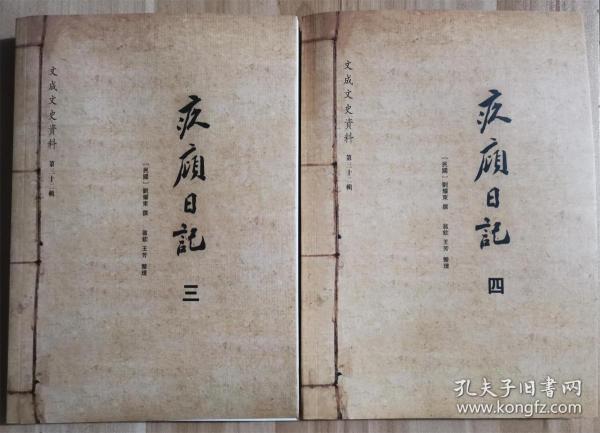 文成文史資料 第三十一輯
疚廎日記
三
［民國］劉耀東 撰
王芳 整理
文成文史資料 第三十一輯
疚廎日記
四
［民國］劉耀東 撰
王芳 整理
孔夫子旧书网
www.kongfz.com